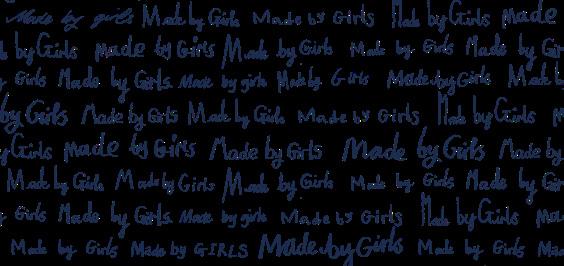 Made by girls Made by Girls Made by Girls Made by Girls made
by Girls made by Girls Made by Girls Made by Girls Made by Gir
by Girls Made by Girls. Made by girls Made by Girls Made by Girls Made b
by Girls Made by Girls Made by Girls Made by Girls Made by Girls m
Girls made by Girls Made by Girls Made by Girls Made by
Made by Girls Made by Girls Made by Girls Made by Girls Made by Gir
by Girls Made by Girls. Made by girls Made by Girls Made by Girls Ma
Made by Girls Made by GIRLS Made by Girls Made by Girls Made